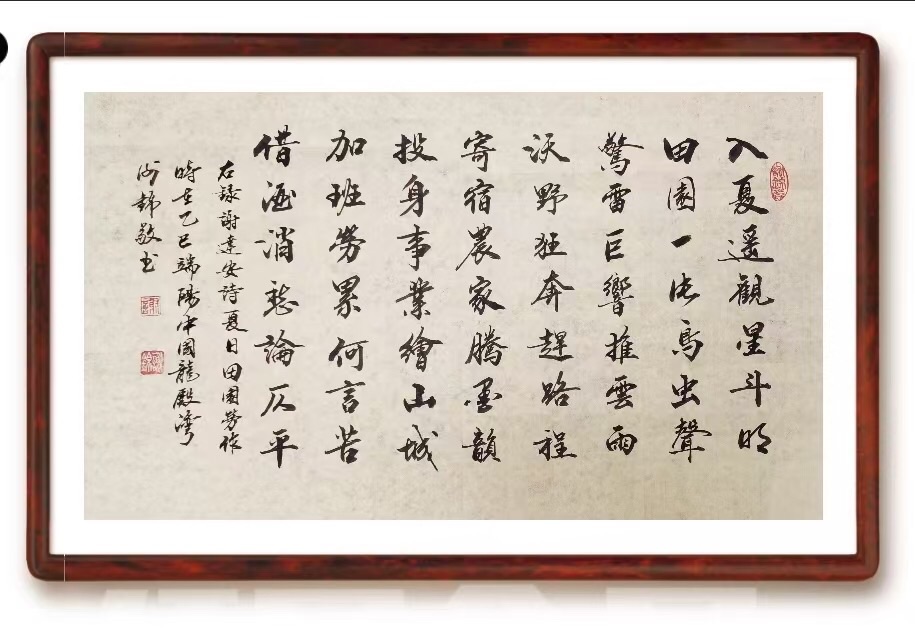 入夏遥觀星斗明
田園一派鳥虫聲
驚雷巨響推雲雨
沃野狂奔趕路程
寄宿農家騰墨韻
投身事業繪山城
加班勞累何言苦
借酒消愁論仄平
右錄謝達安詩夏日田園勞作
時在乙巳端陽中國龍殿灣
敬书